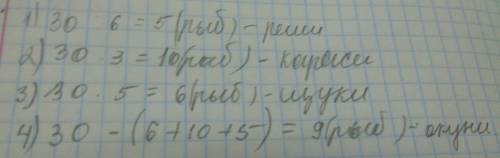 1) 30 6 = 5 (рыб) - реши
2) 30 · 3 = 10 (рыб) - караси
3) 30 · 5 = 6 (рыб) - щуки
4) 30 - (6 + 10 + 5) = 9 (рыб) - окуни